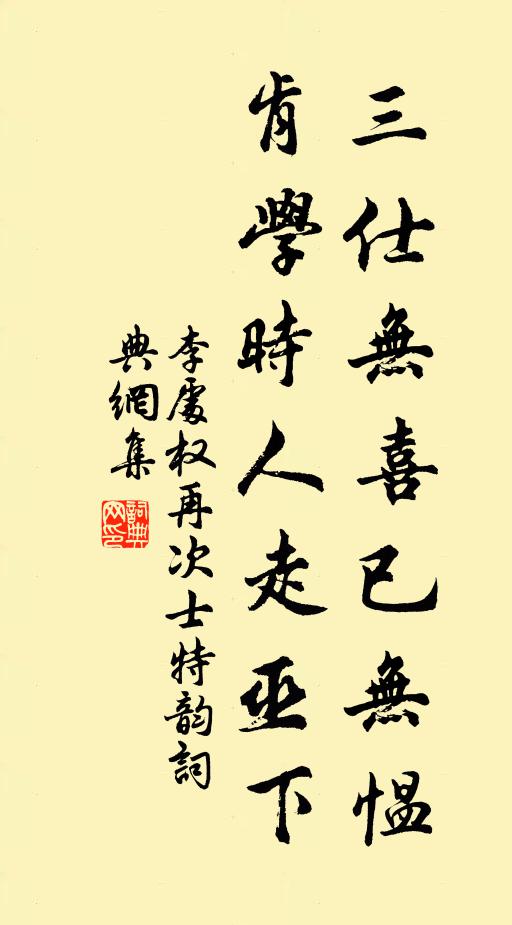 三仕無喜已無愠
肯學時人走巫下
李處权再次士特韵詞
典網集
詞典網印